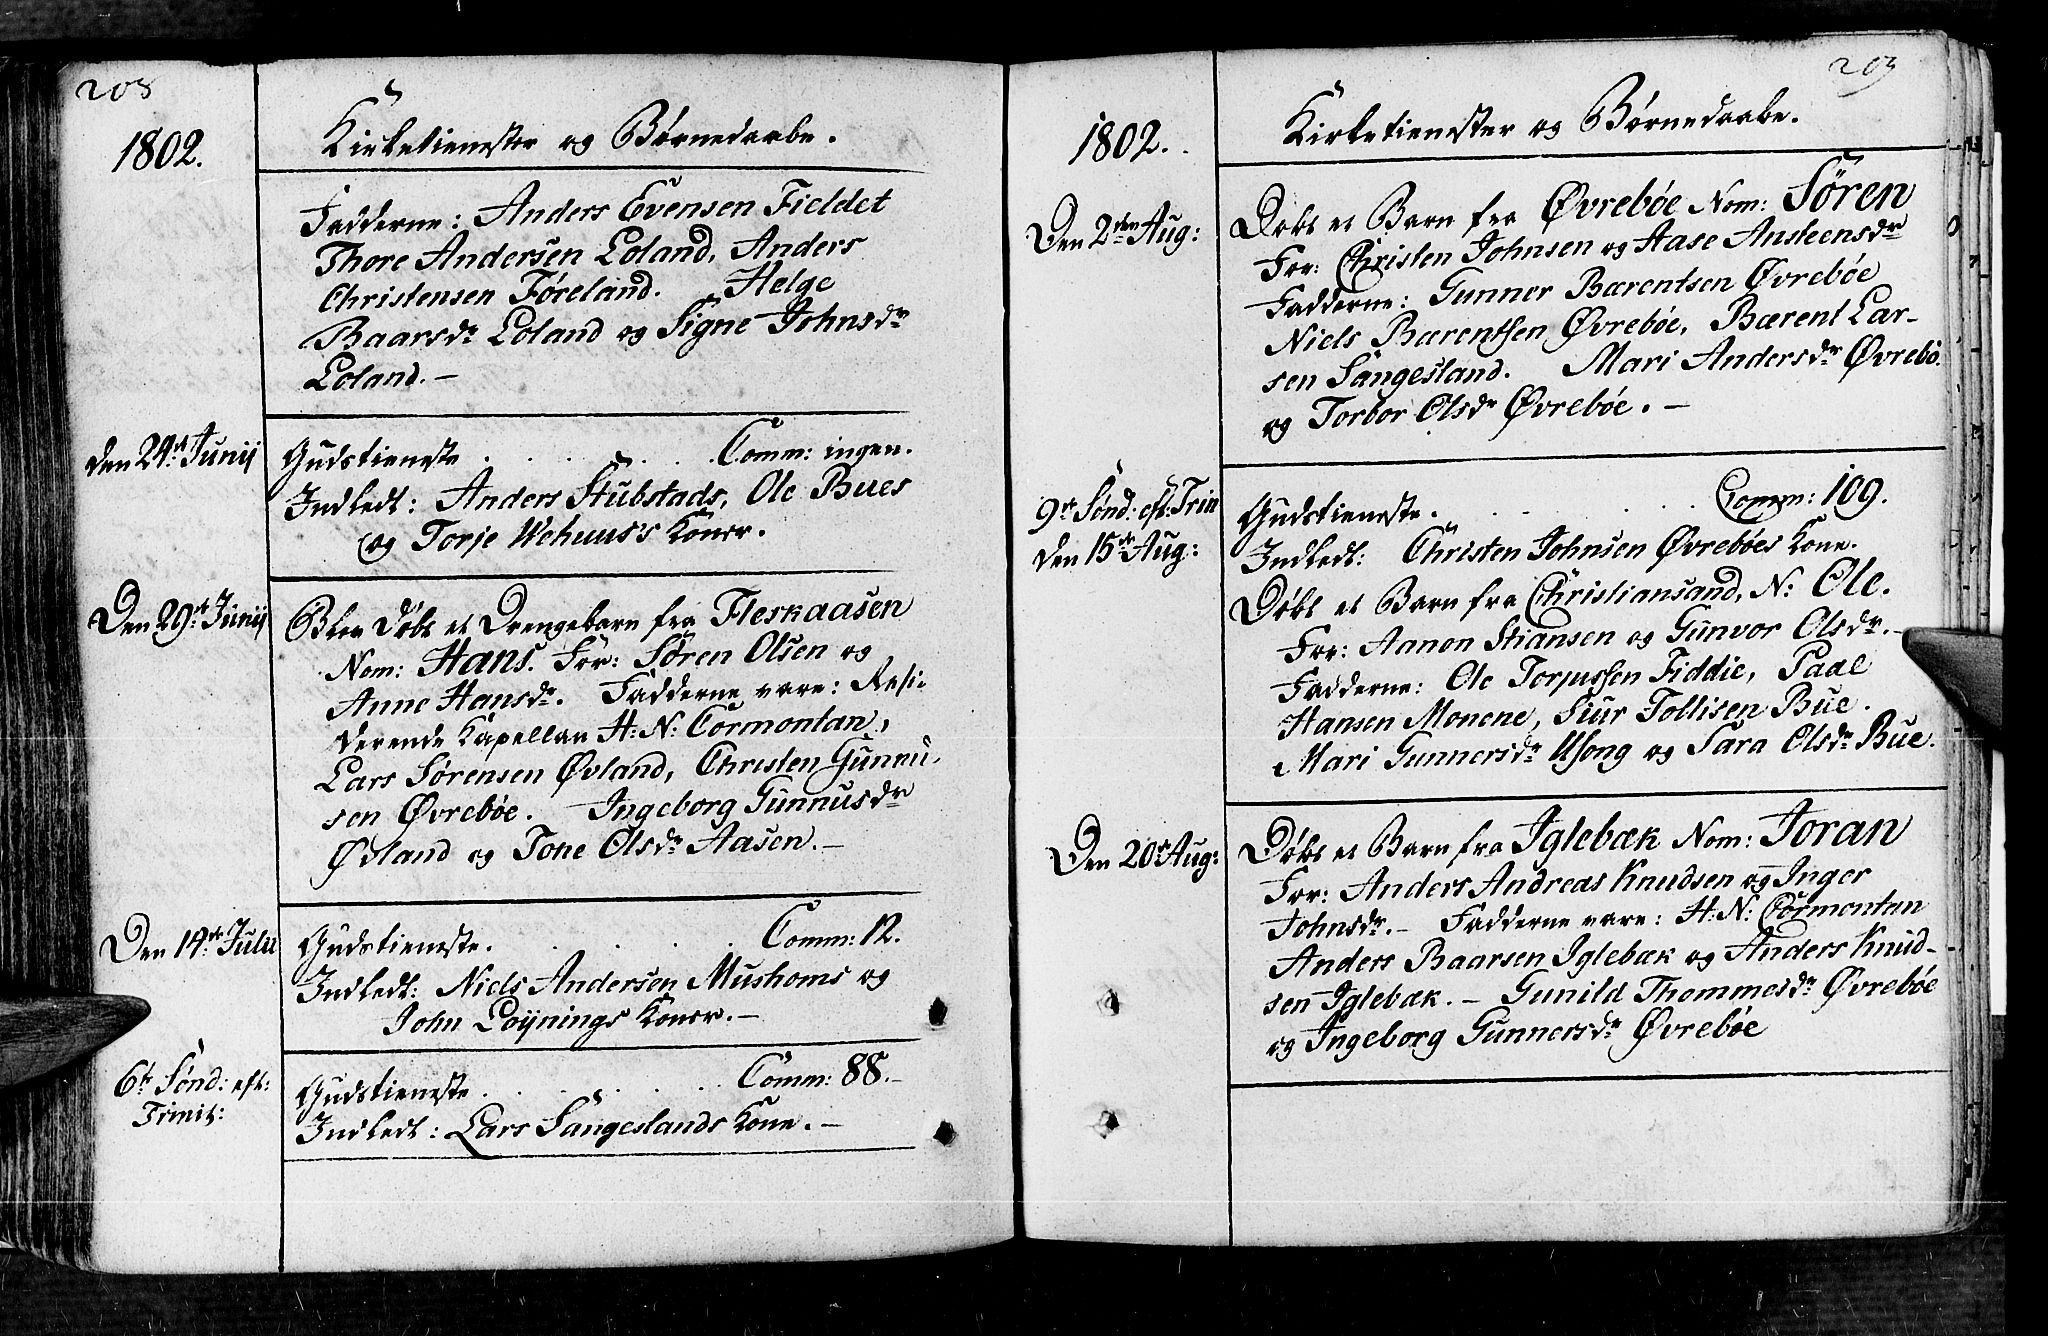 208
1802.
Kirketienester og Børnedaabe.
Fadderne: Anders Evensen Fieldet
Thore Andersen Loland, Anders
Christensen Føreland. Helge
Baarsdr Loland og Signe Johnsdr
Loland.-
den 24de Junij
Gudstieneste . . . . . . Comm: ingen.
Indledt: Anders Stubstads, Ole Bues
og Torje Wehuus's Koner.
Den 29de Junij
Blev Døbt et Drengebarn fra Fleskaasen
Nom: Hans. For: Søren Olsen og
Anne Hansdr. Fadderne vare: Resi-
derende Kapellan H: N: Cormontan,
Lars Sørensen Øvland, Christen Gunnu-
sen Øvrebøe. Ingeborg Gunnusdr
Øvland og Tone Olsdr Aasen.-
Den 14de Julii
Gudstieneste. . . . . Comm: 12.
Indledt: Niels Andersen Mushoms og
John Løynings Koner.-
6te Sønd: eft:
Trinit:
Gudstieneste. . . . . Comm: 88.-
Indledt: Lars Sangeslands Kone.-
209
1802.
Kirketienester og Børnedaabe.
Den 2den Aug:
Døbt et Barn fra Øvrebøe Nom: Søren
For: Christen Johnsen og Aase Ansteensdr
Fadderne: Gunner Bærentsen Øvrebøe
Niels Bærentsen Øvrebøe, Bærent Lar-
sen Sangesland. Mari Andersdr Øvrebø.
og Torbor Olsdr Øvrebøe.-
9de Sønd: eft: Trin
den 15de Aug:
Gudstieneste. . . . . . Comm: 109.
Indledt: Christen Johnsen Øvrebøes Kone.
Døbt et Barn fra Christiansand, N: Ole.
For: Aanon Stiansen og Gunvor Olsdr.-
Fadderne: Ole Torjussen Fiddie, Paal
Hansen Monene, Siur Tollisen Bue.
Mari Gunnersdr Usong og Sara Olsdr Bue.
Den 20de Aug:
Døbt et Barn fra Iglebæk Nom: Joran
For: Anders Andreas Knudsen og Inger
Johnsdr.- Fadderne vare: H: N: Cormontan
Anders Baarsen Iglebæk og Anders Knud-
sen Iglebæk.- Gunild Thommesdr Øvrebøe
og Ingeborg Gunnersdr Øvrebøe